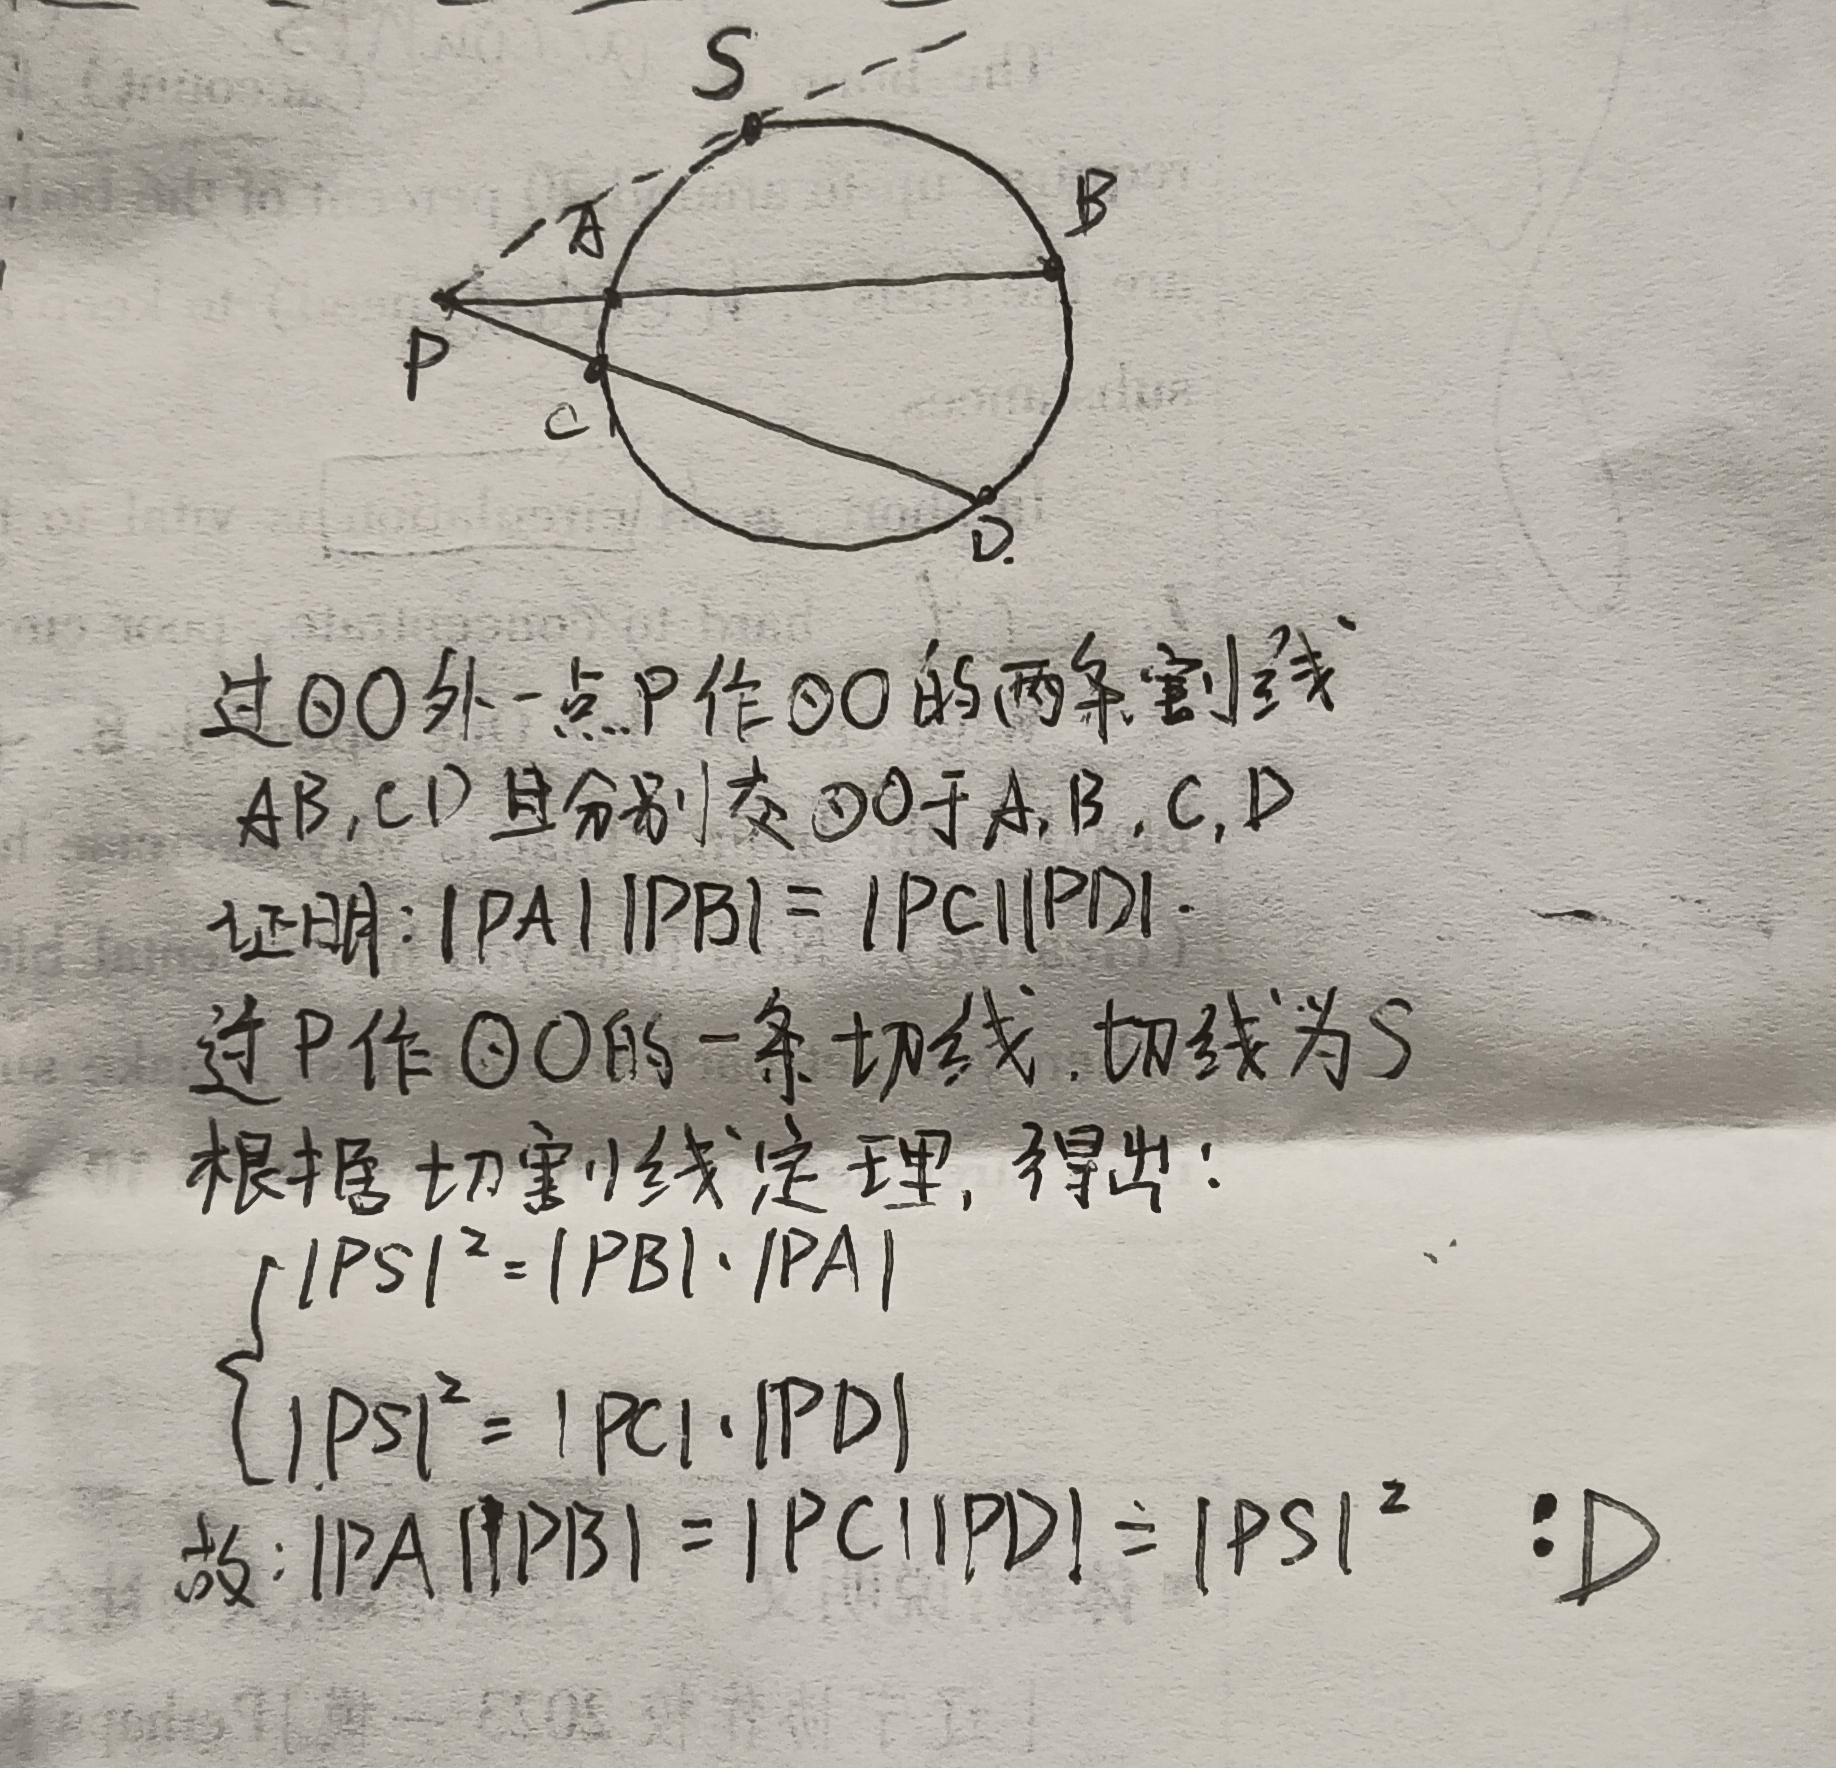 S
A
B
P
C
D.
过⊙O外一点P作⊙O的两条割线
AB,CD且分别交⊙O于A,B,C,D
证明:|PA||PB|=|PC||PD|.
过P作⊙O的一条切线,切线为S
根据切割线定理,得出:
|PS|²=|PB|·|PA|
|PS|²=|PC|·|PD|
故:|PA||PB|=|PC||PD|=|PS|² :D